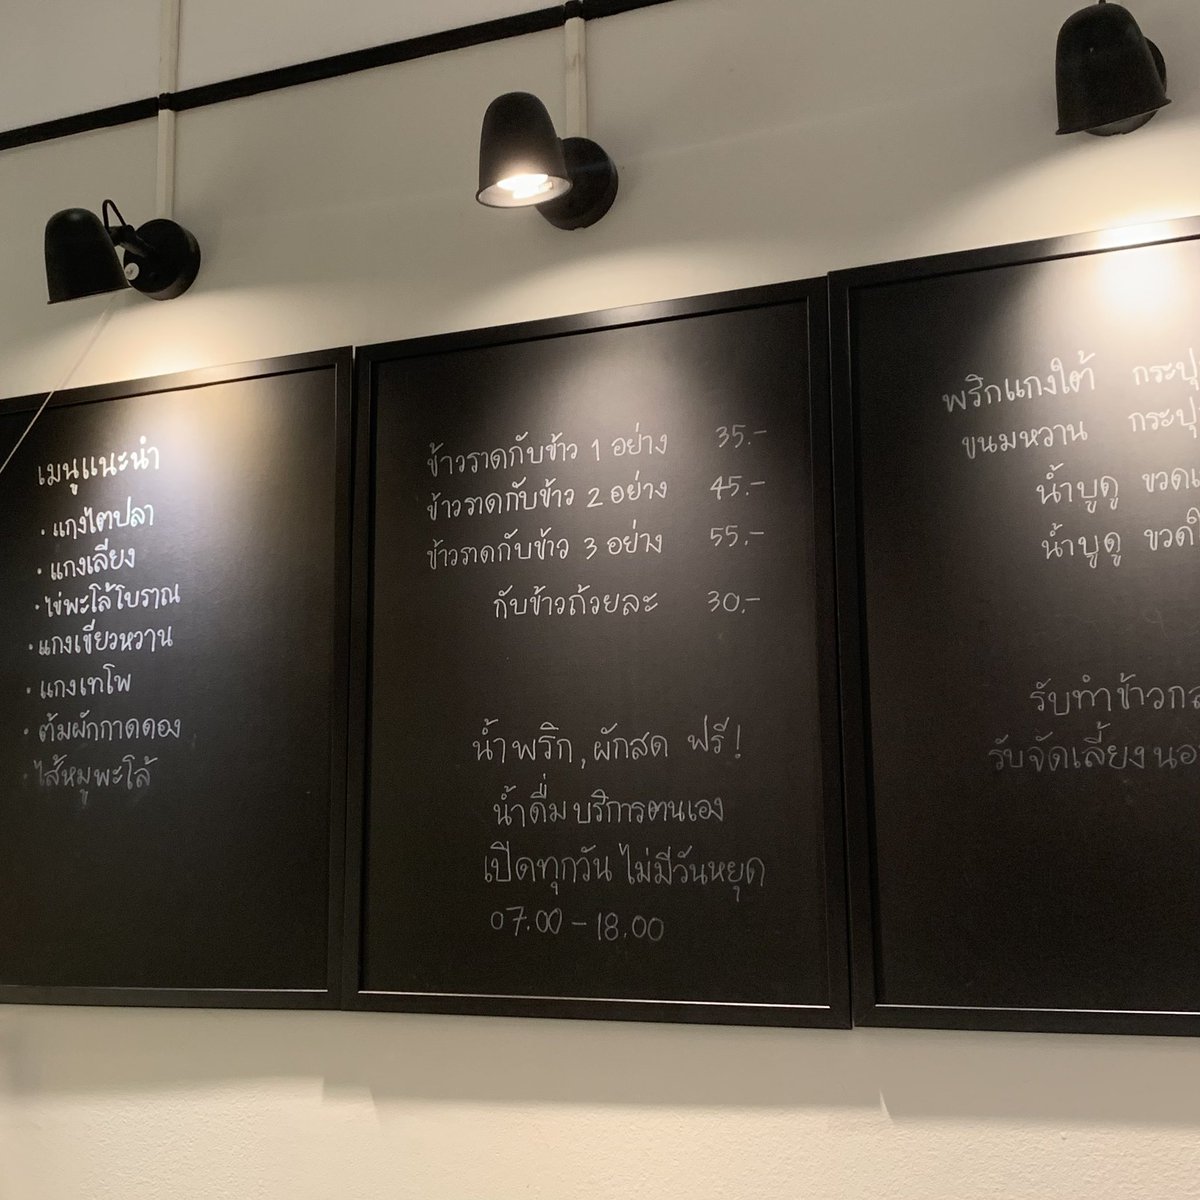 เมนูแนะนำ
· แกงไตปลา
· แกงเลียง
· ไข่พะโล้โบราณ
· แกงเขียวหวาน
· แกงเทโพ
· ต้มผักกาดดอง
· ไส้หมูพะโล้
ข้าวราดกับข้าว 1 อย่าง 35.-
ข้าวราดกับข้าว 2 อย่าง 45.-
ข้าวราดกับข้าว 3 อย่าง 55.-
กับข้าวถ้วยละ 30.-
น้ำพริก, ผักสด ฟรี!
น้ำดื่มบริการตนเอง
เปิดทุกวัน ไม่มีวันหยุด
07.00 - 18.00
พริกแกงใต้ กระปุ
ขนมหวาน กระปุ
น้ำบูดู ขวด
น้ำบูดู ขวดใ
รับทำข้าวก
รับจัดเลี้ยงนอ